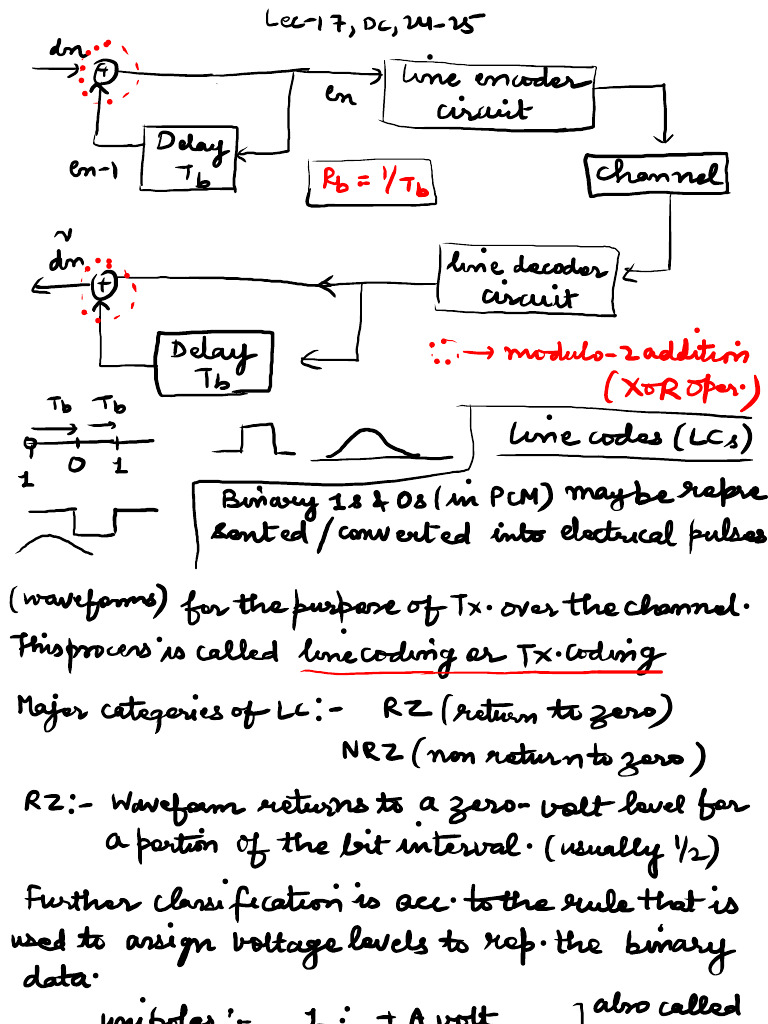 Lec-17, DC, 24-25
dn
+
en
line encoder
circuit
Delay
Tb
en-1
Rb = 1/Tb
channel
~
dn
+
line decoder
circuit
Delay
Tb
→ modulo-2 addition
(XOR Oper.)
Tb Tb
1 0 1
line codes (LCs)
Binary 1s & 0s (in PCM) may be repre
sented/converted into electrical pulses
(waveforms) for the purpose of Tx. over the channel.
This process is called line coding or Tx. coding
Major categories of LC:- RZ (return to zero)
NRZ (non return to zero)
RZ:- Waveform returns to a zero-volt level for
a portion of the bit interval. (usually 1/2)
Further classification is acc. to the rule that is
used to assign voltage levels to rep. the binary
data.
unipolar:- 1: +A volt ] also called